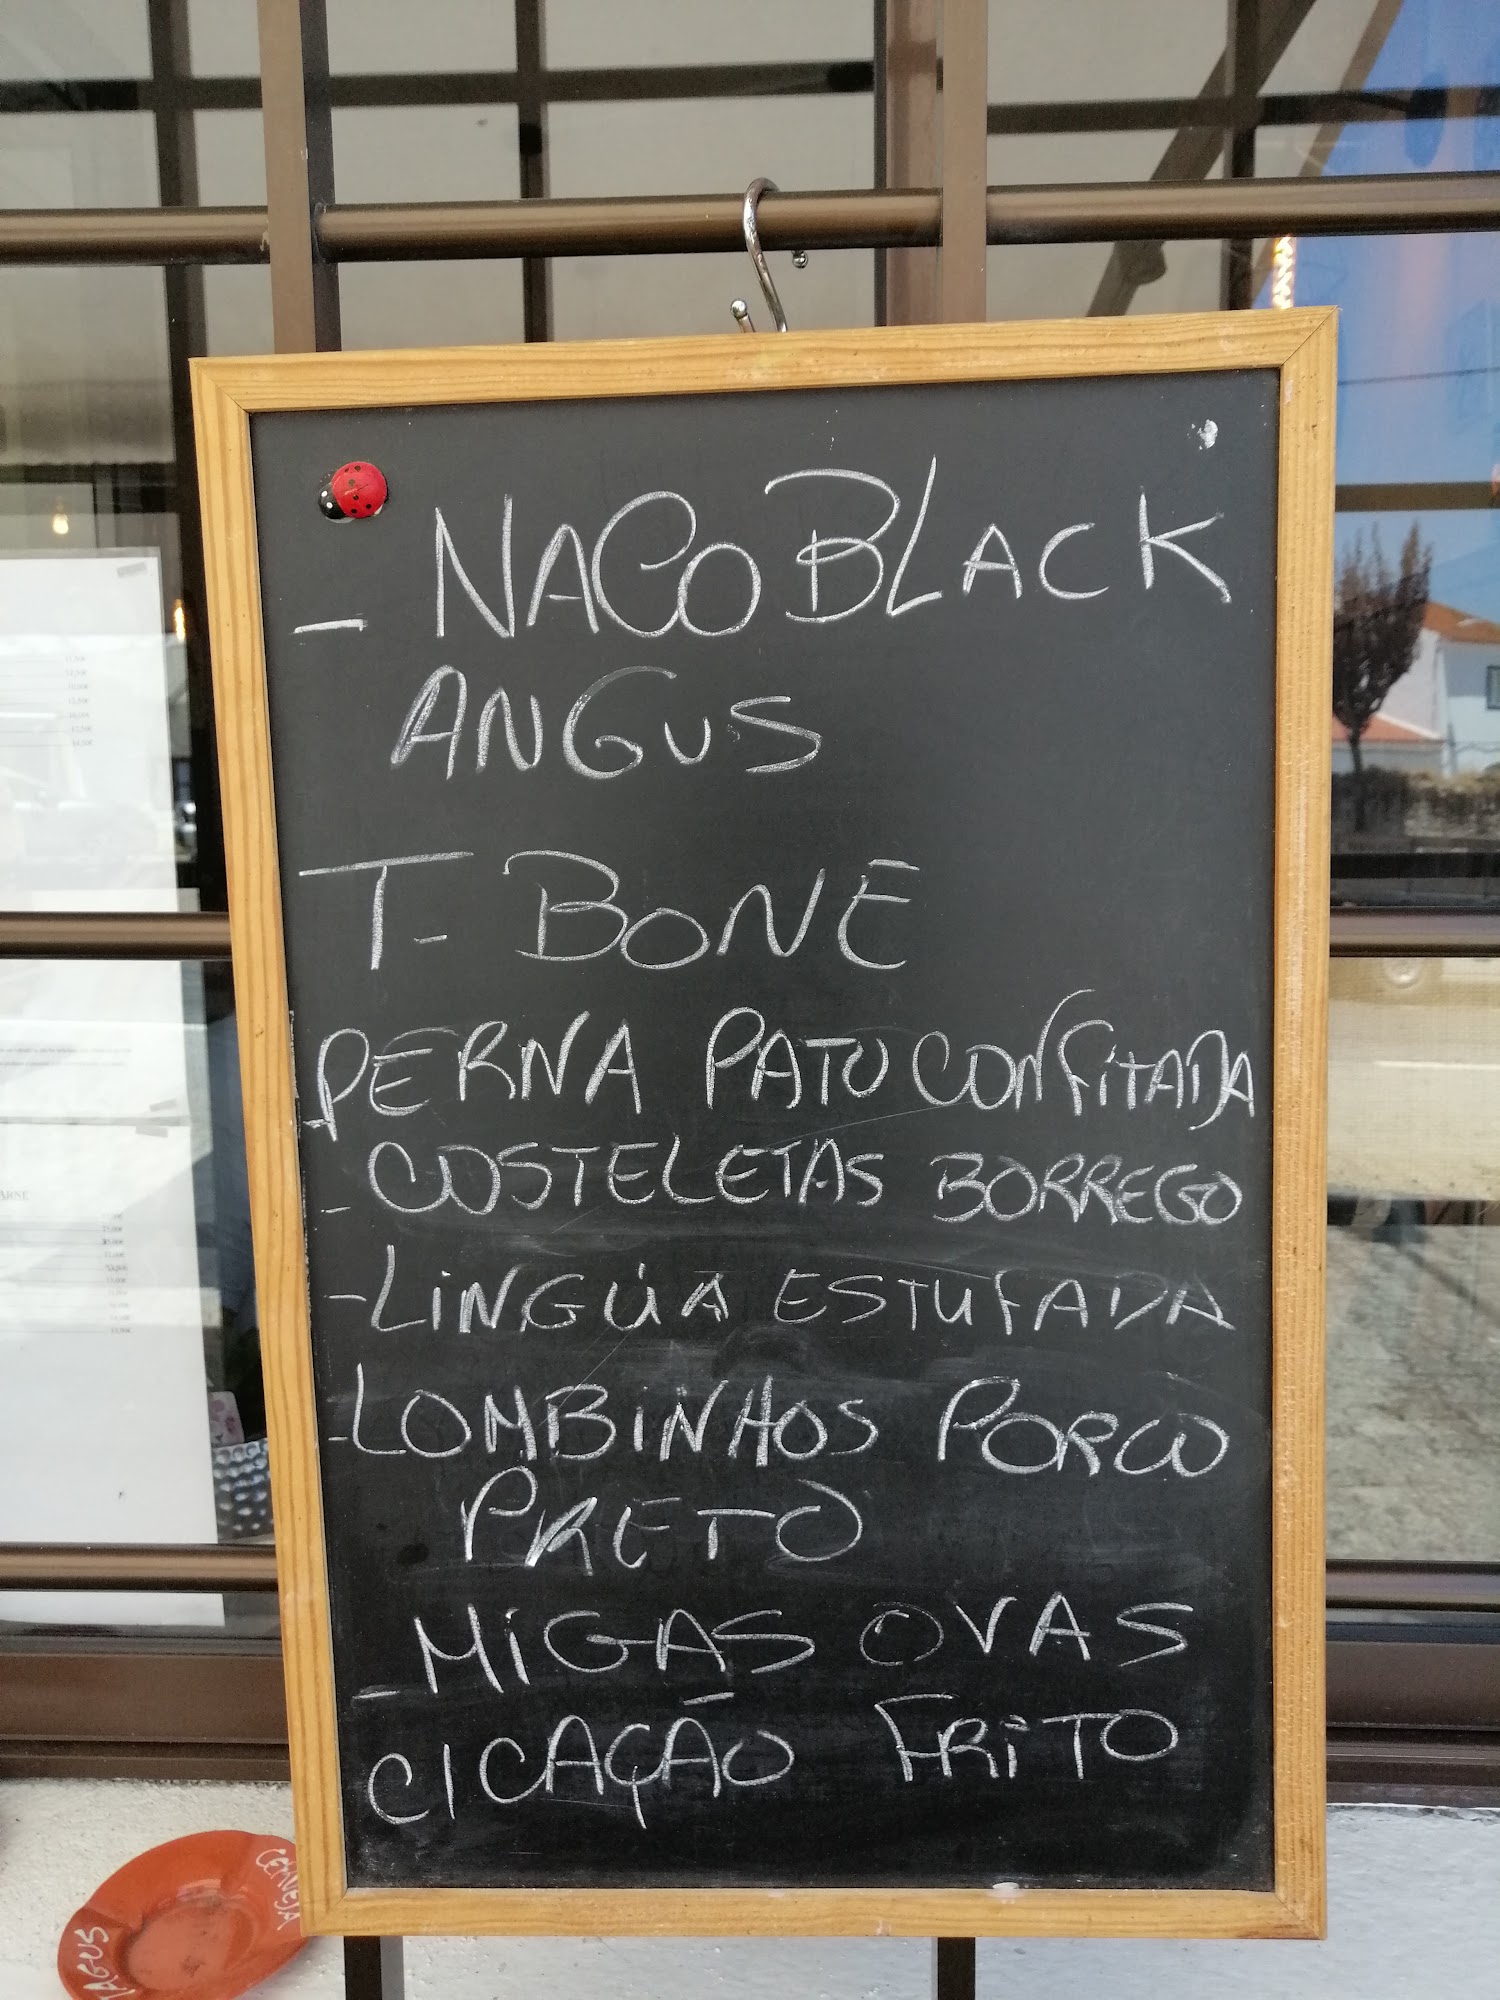 - NACO BLACK
ANGUS
T-BONE
PERNA PATO CONFITADA
- COSTELETAS BORREGO
- LINGÚA ESTUFADA
- LOMBINHOS PORCO
PRETO
- MIGAS OVAS
C/CAÇÃO FRITO
CERVEJA
TAGUS
ARNE